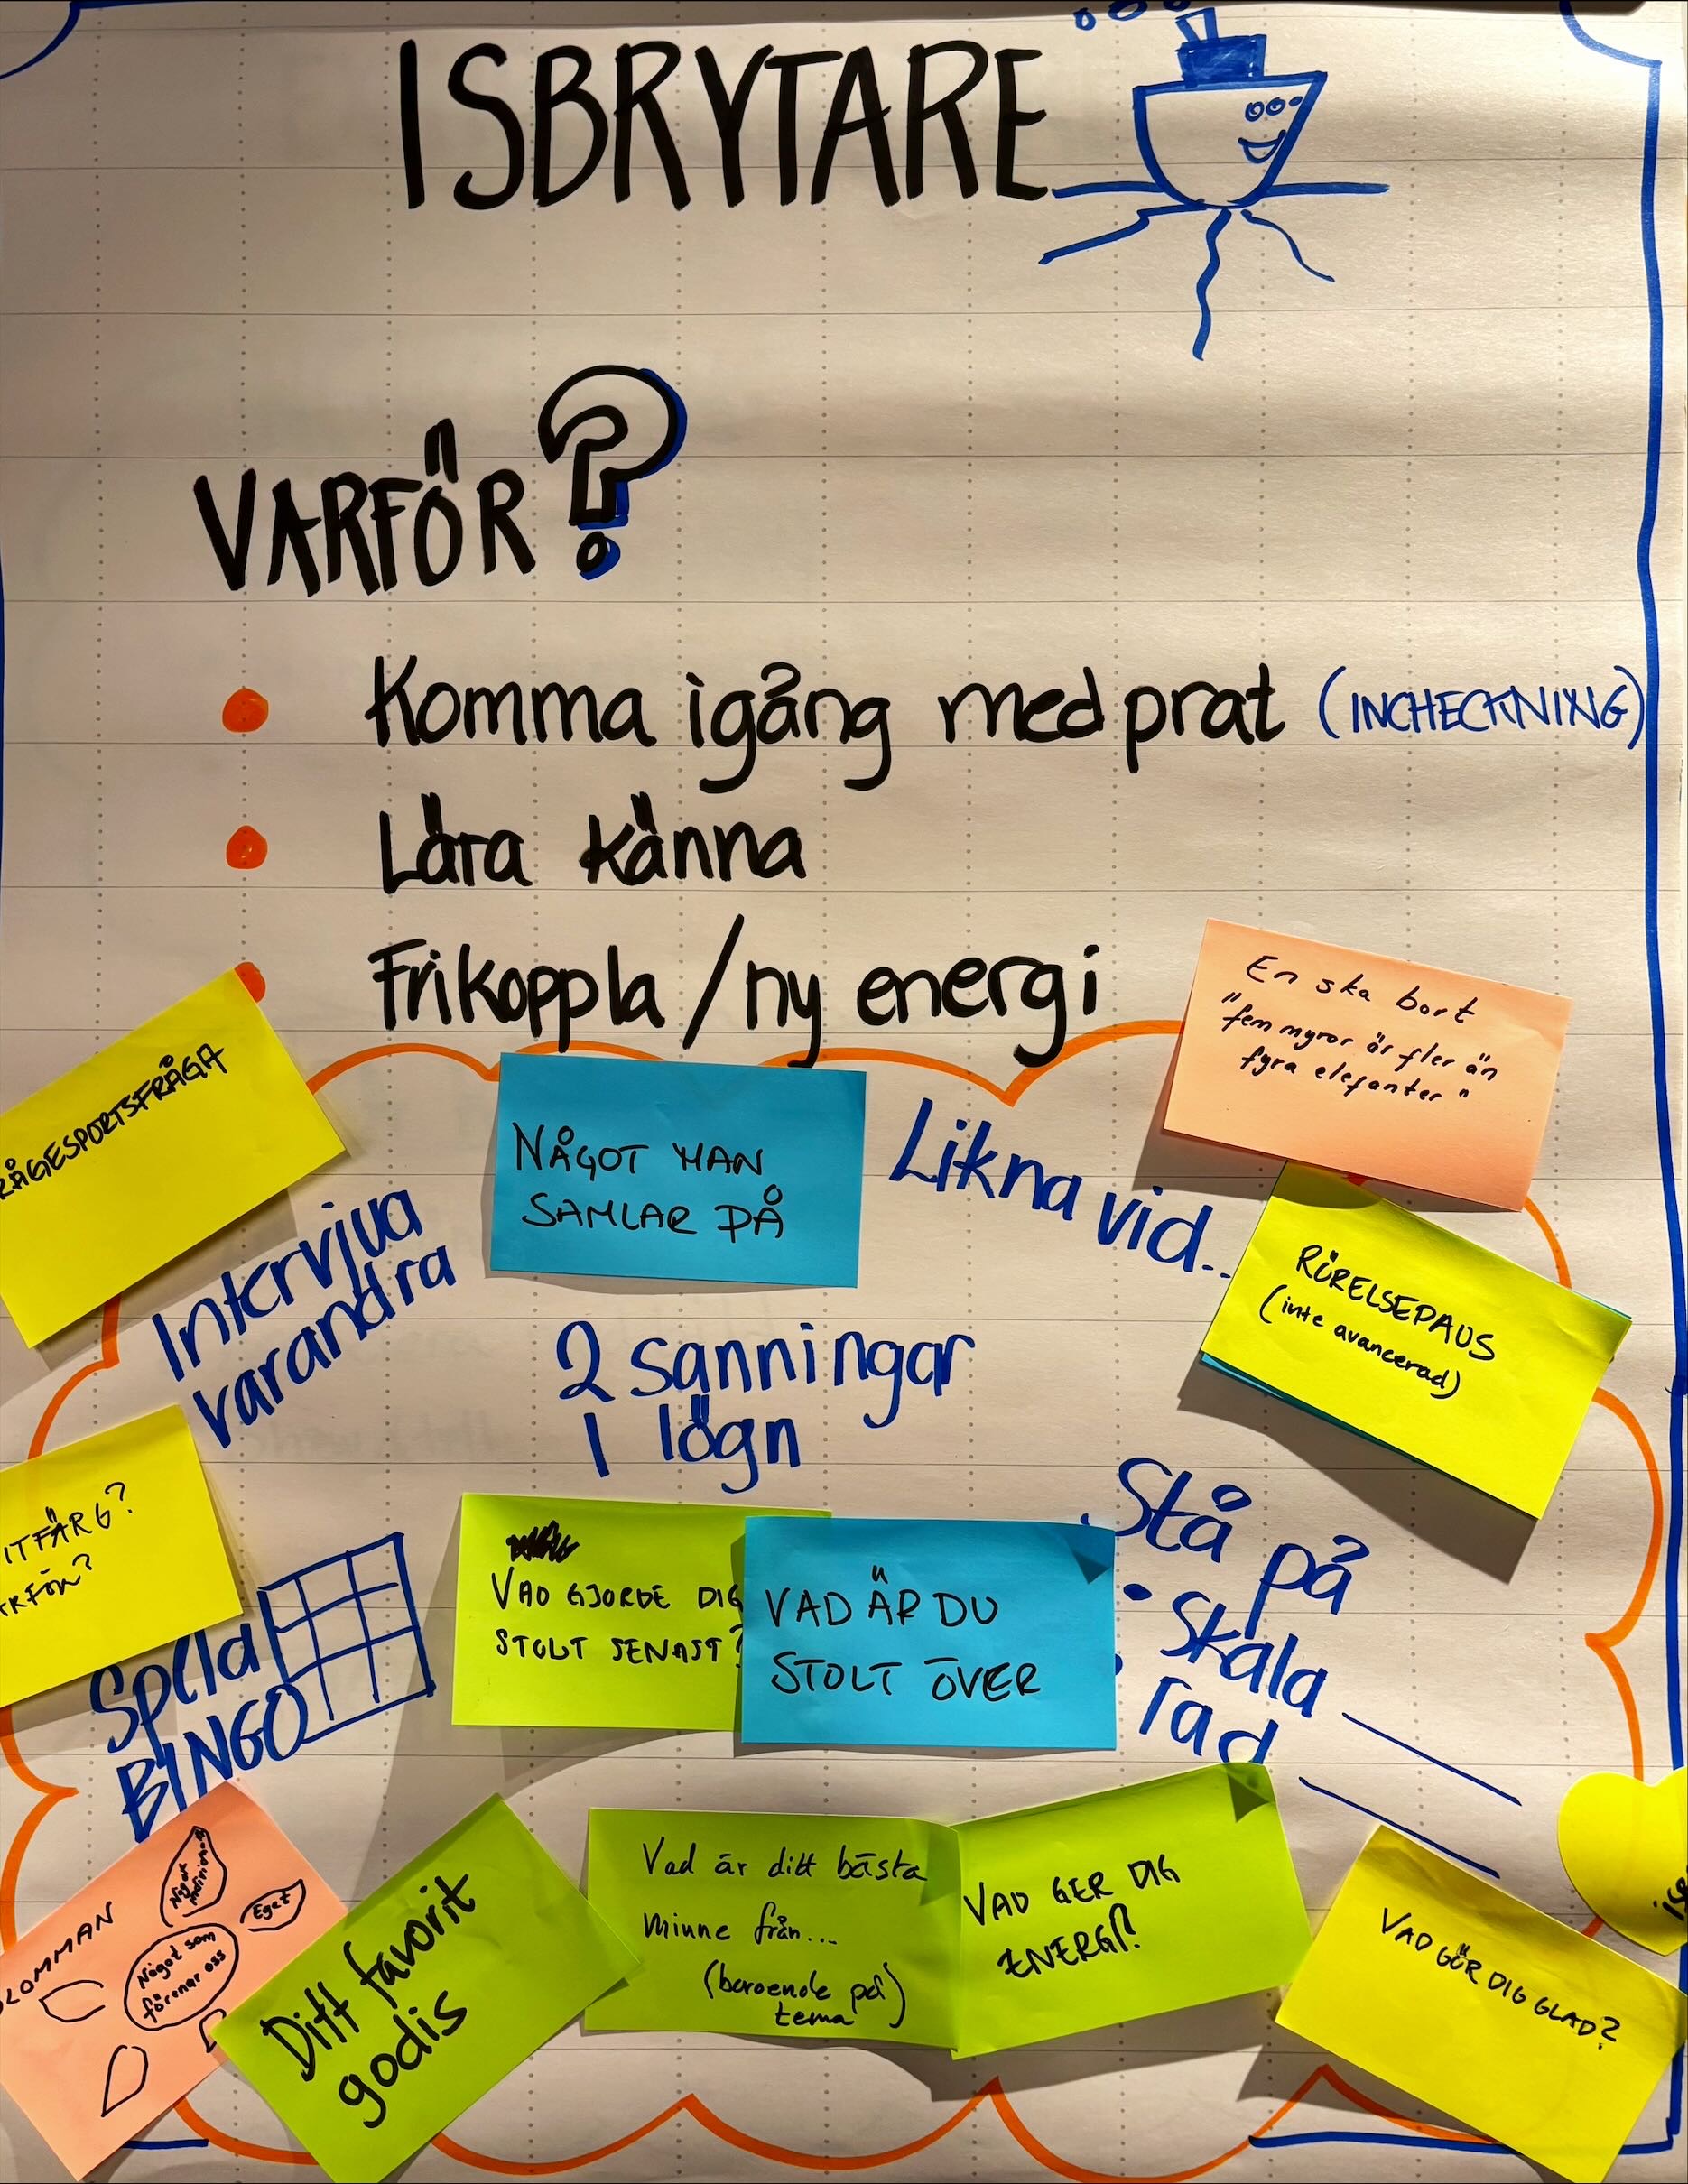 ISBRYTARE
VARFÖR?
Komma igång med prat (INCHECKNING)
Lära känna
Frikoppla / ny energi
En ska bort
"fem myror är fler än
fyra elefanter"
RÅGESPORTSFRÅGA
NÅGOT MAN
SAMLAR PÅ
Likna vid...
Intervjua
varandra
RÖRELSEPAUS
(inte avancerad)
2 sanningar
1 lögn
ITFÄRG?
RFÖR?
VAD GJORDE DIG
STOLT SENAST?
VAD ÄR DU
STOLT ÖVER
Stå på
• skala
• rad
Spela
BINGO
LOMMAN
Något
Eget
Något som
förenar oss
Ditt favorit
godis
Vad är ditt bästa
minne från...
(beroende på
tema)
VAD GER DIG
ENERGI?
VAD GÖR DIG GLAD?